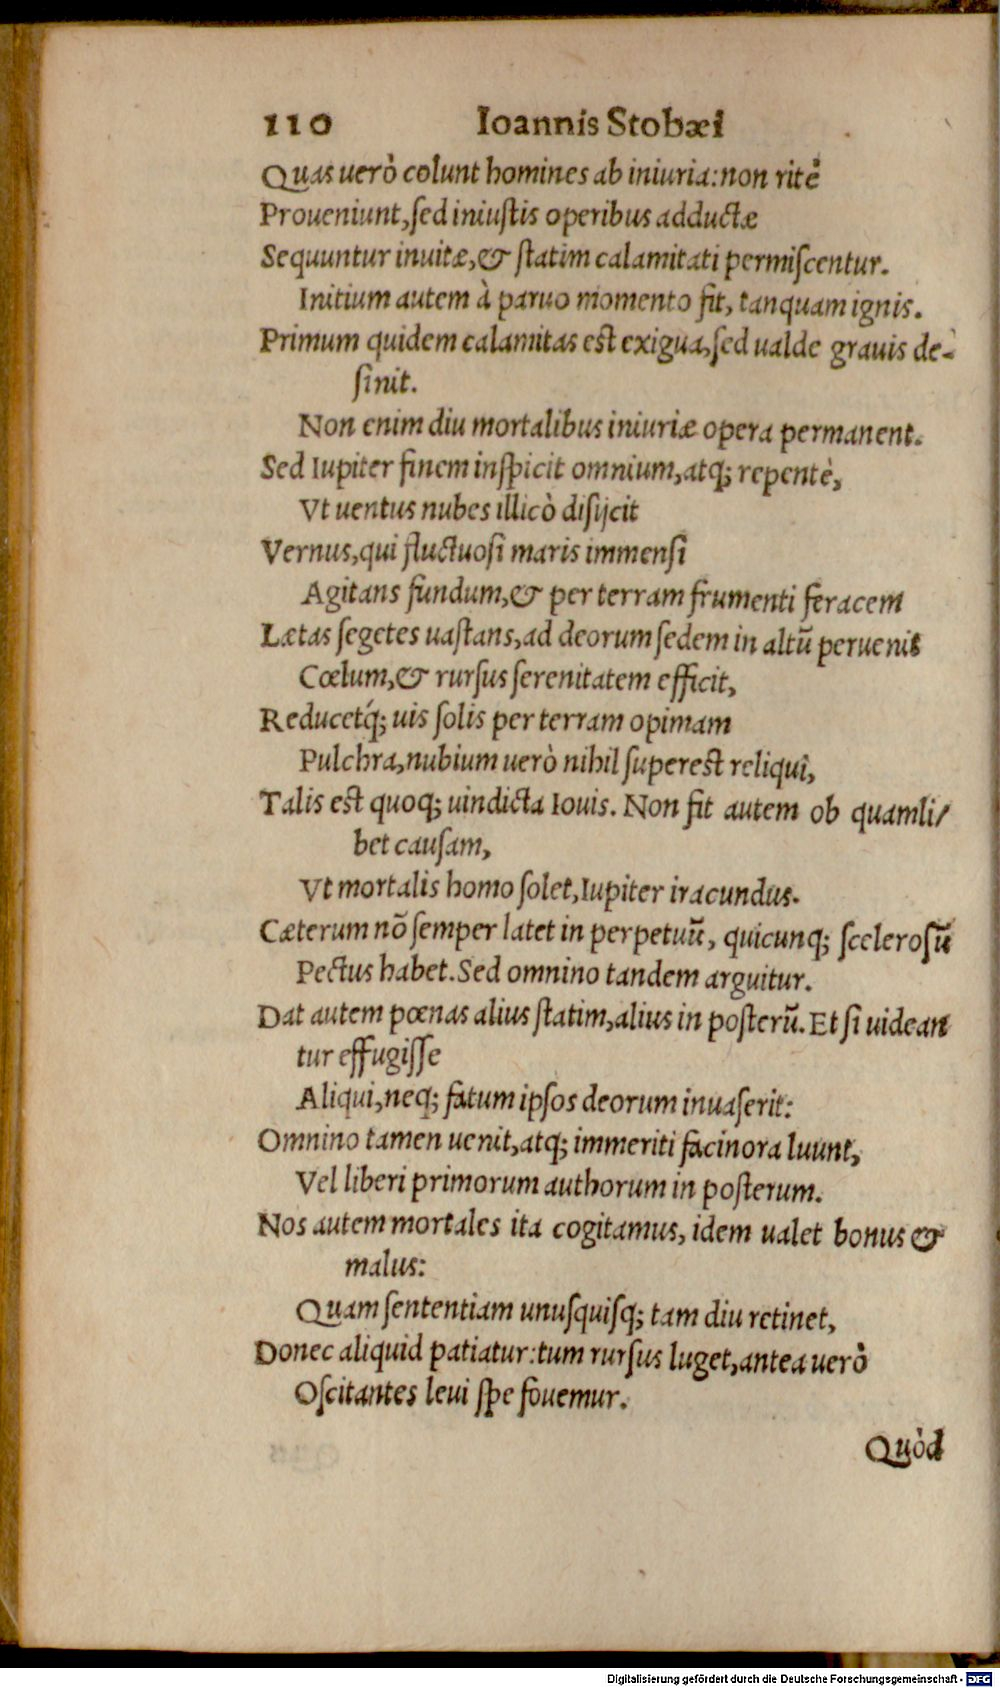 110 Ioannis Stobæi
Quas uerò colunt homines ab iniuria: non ritè
Proueniunt, sed iniustis operibus adductæ
Sequuntur inuitæ, & statim calamitati permiscentur.
Initium autem à paruo momento fit, tanquam ignis.
Primum quidem calamitas est exigua, sed ualde grauis de-
sinit.
Non enim diu mortalibus iniuriæ opera permanent.
Sed Iupiter finem inspicit omnium, atq; repentè,
Vt uentus nubes illicò disijcit
Vernus, qui fluctuosi maris immensi
Agitans fundum, & per terram frumenti feracem
Lætas segetes uastans, ad deorum sedem in altũ peruenit
Cœlum, & rursus serenitatem efficit,
Reducetq́; uis solis per terram opimam
Pulchra, nubium uerò nihil superest reliqui,
Talis est quoq; uindicta Iouis. Non fit autem ob quamli/
bet causam,
Vt mortalis homo solet, Iupiter iracundus.
Cæterum nõ semper latet in perpetuũ, quicunq; scelerosũ
Pectus habet. Sed omnino tandem arguitur.
Dat autem pœnas alius statim, alius in posterũ. Et si uidean
tur effugisse
Aliqui, neq; fatum ipsos deorum inuaserit:
Omnino tamen uenit, atq; immeriti facinora luunt,
Vel liberi primorum authorum in posterum.
Nos autem mortales ita cogitamus, idem ualet bonus &
malus:
Quam sententiam unusquisq; tam diu retinet,
Donec aliquid patiatur: tum rursus luget, antea uerò
Oscitantes leui spe fouemur.
Quòd
Digitalisierung gefördert durch die Deutsche Forschungsgemeinschaft - DFG